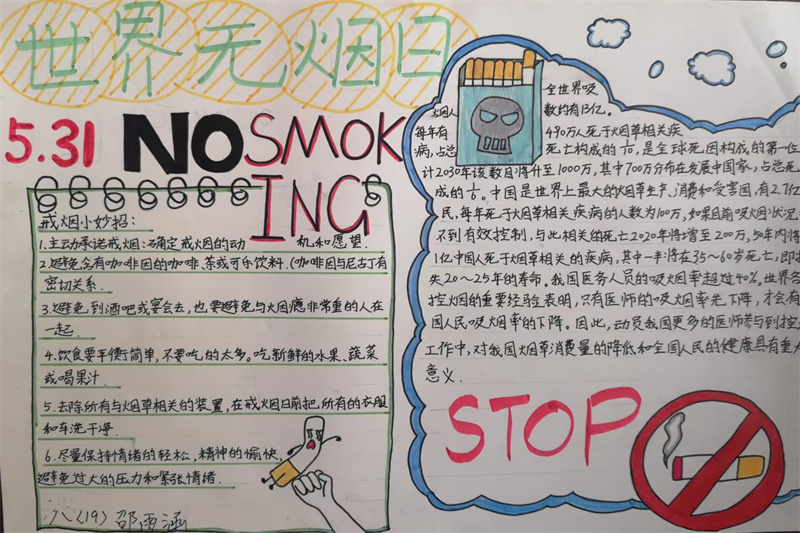 世界无烟日
5.31 NO SMOK
ING
戒烟小妙招:
1.主动承诺戒烟:确定戒烟的动机和愿望.
2.避免含有咖啡因的咖啡.茶或可乐饮料.(咖啡因与尼古丁有
密切关系.
3.避免到酒吧或宴会去,也要避免与烟瘾非常重的人在
一起.
4.饮食要平衡简单,不要吃的太多。吃新鲜的水果、蔬菜
或喝果汁.
5.去除所有与烟草相关的装置,在戒烟日前把,所有的衣服
和车洗干净.
6.尽量保持情绪的轻松,精神的愉快,
避免过大的压力和紧张情绪.
八(19) 邵雨涵
全世界吸
烟人数约有13亿。
每年有490万人死于烟草相关疾
病,占总死亡构成的1/10,是全球死因构成的第一位
计2030年该数目将升至1000万,其中700万分布在发展中国家,占总死
成的1/6。中国是世界上最大的烟草生产、消费和受害国,有2.7亿
民,每年死于烟草相关疾病的人数为100万,如果目前吸烟状况
不到有效控制,与此相关的死亡2020年将增至200万,50年内将
1亿中国人死于烟草相关的疾病,其中一半将在35~60岁死亡,即损
失20~25年的寿命。我国医务人员的吸烟率超过40%。世界各
控烟的重要经验表明,只有医师的吸烟率先下降,才会有
国人民吸烟率的下降。因此,动员我国更多的医师参与到控
工作中,对我国烟草消费量的降低和全国人民的健康具有重大
意义.
STOP